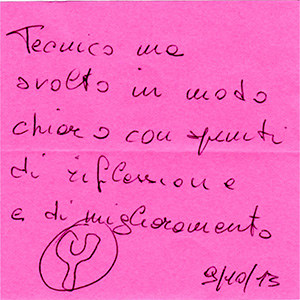 Tecnico ma
svolto in modo
chiaro con spunti
di riflessione
e di miglioramento
9/10/13